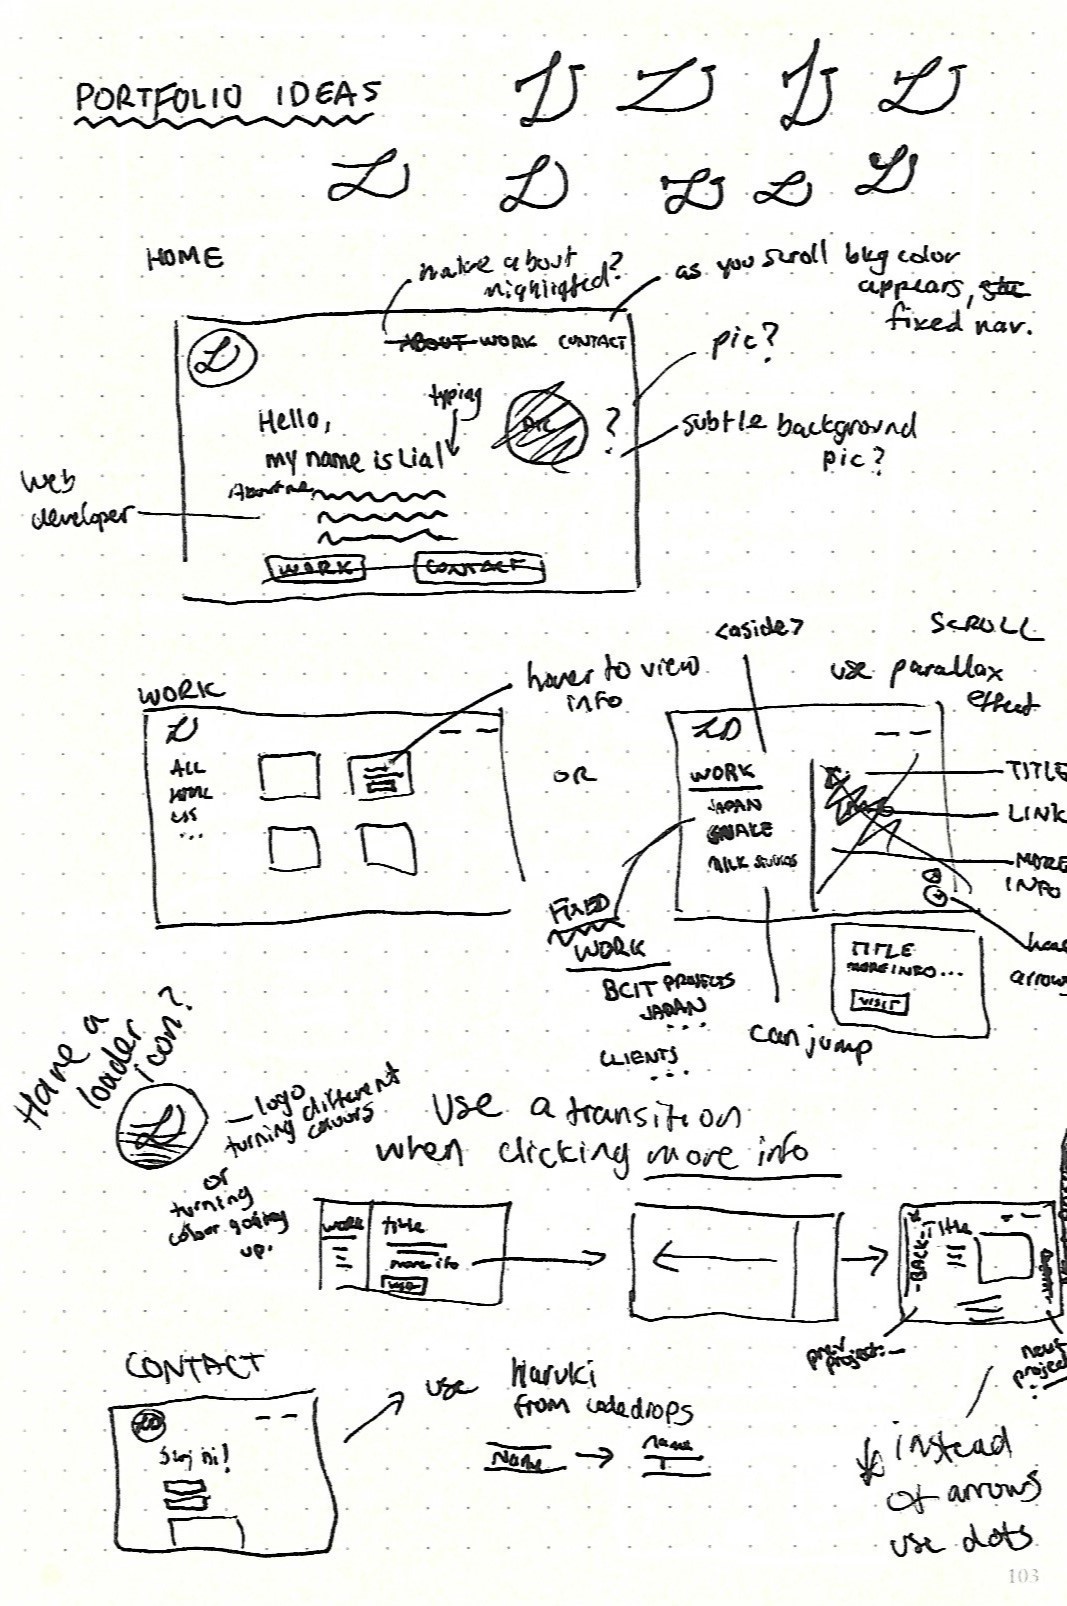 PORTFOLIO IDEAS
HOME
make about
highlighted?
as you scroll bkg color
appears,
fixed nav.
ABOUT WORK CONTACT
pic?
typing
Hello,
my name is Lial
PIC
?
subtle background
pic?
Web
developer
About me
WORK CONTACT
<aside>
SCROLL
use parallax
effect
WORK
hover to view
info
ALL
HTML
CSS
...
OR
LD
WORK
JAPAN
SNAKE
MILK STUDIOS
TITLE
LINK
MORE
INFO
FIXED
WORK
BCIT PROJECTS
JAPAN
...
CLIENTS
...
TITLE
MORE INFO...
VISIT
arrow
can jump
Have a
loader
icon?
logo
turning different
colours
or
turning
colour going
up.
Use a transition
when clicking more info
WORK
title
more info
-BACK-
Title
prev
project
next
project
CONTACT
Say hi!
use Haruki
from codedrops
Name
name
instead
of arrows
use dots
103